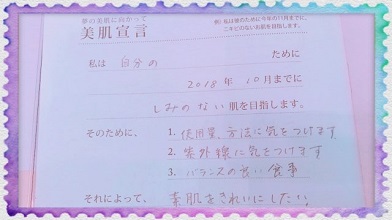 夢の美肌に向かって
美肌宣言
例）私は彼のために今年の11月までに、
こすじのないお肌を目指します。
私は 自分の ために
2018年 10月までに
しみのない 肌を目指します。
そのために、 1. 使用量、方法に気をつけます
2. 紫外線に気をつけます
3. バランスの良い食事
それによって、 素肌をきれいにしたい